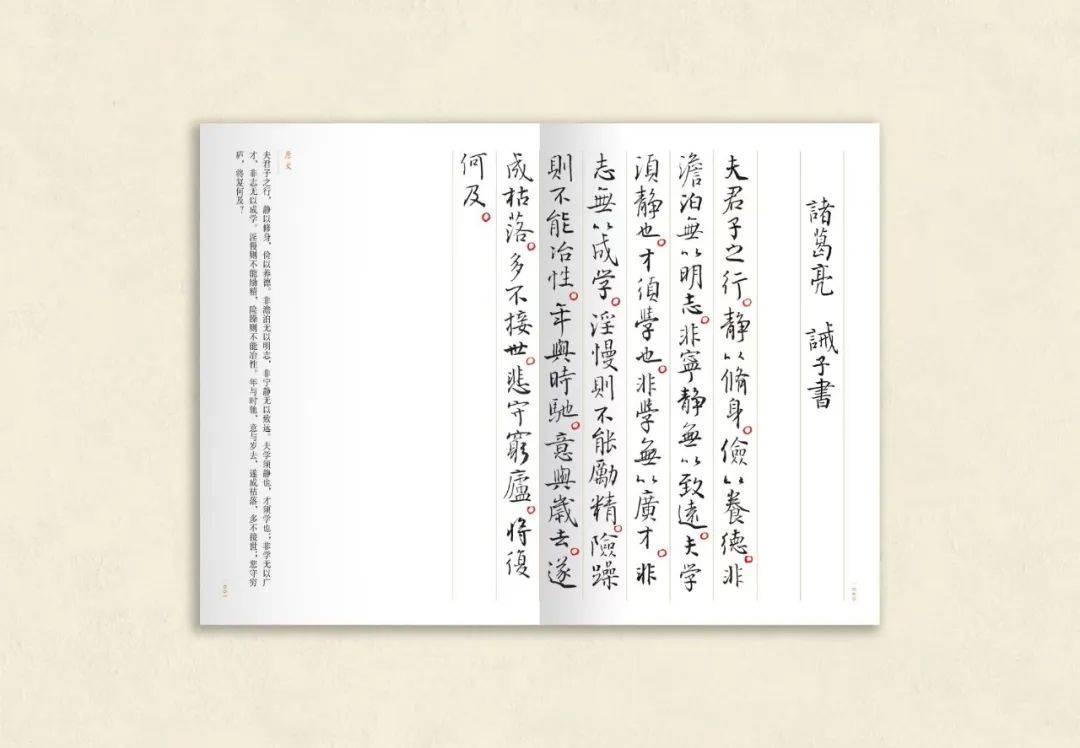 諸葛亮　誡子書
夫君子之行。静以脩身。儉以養德。非
澹泊無以明志。非寧静無以致遠。夫学
須静也。才須學也。非學無以廣才。非
志無以成学。淫慢則不能勵精。險躁
則不能冶性。年與時馳。意與歲去。遂
成枯落。多不接世。悲守窮廬。將復
何及。
原文
夫君子之行，静以修身，俭以养德。非澹泊无以明志，非宁静无以致远。夫学须静也，才须学也；非学无以广
才，非志无以成学。淫慢则不能励精，险躁则不能治性。年与时驰，意与岁去，遂成枯落，多不接世；悲守穷
庐，将复何及？